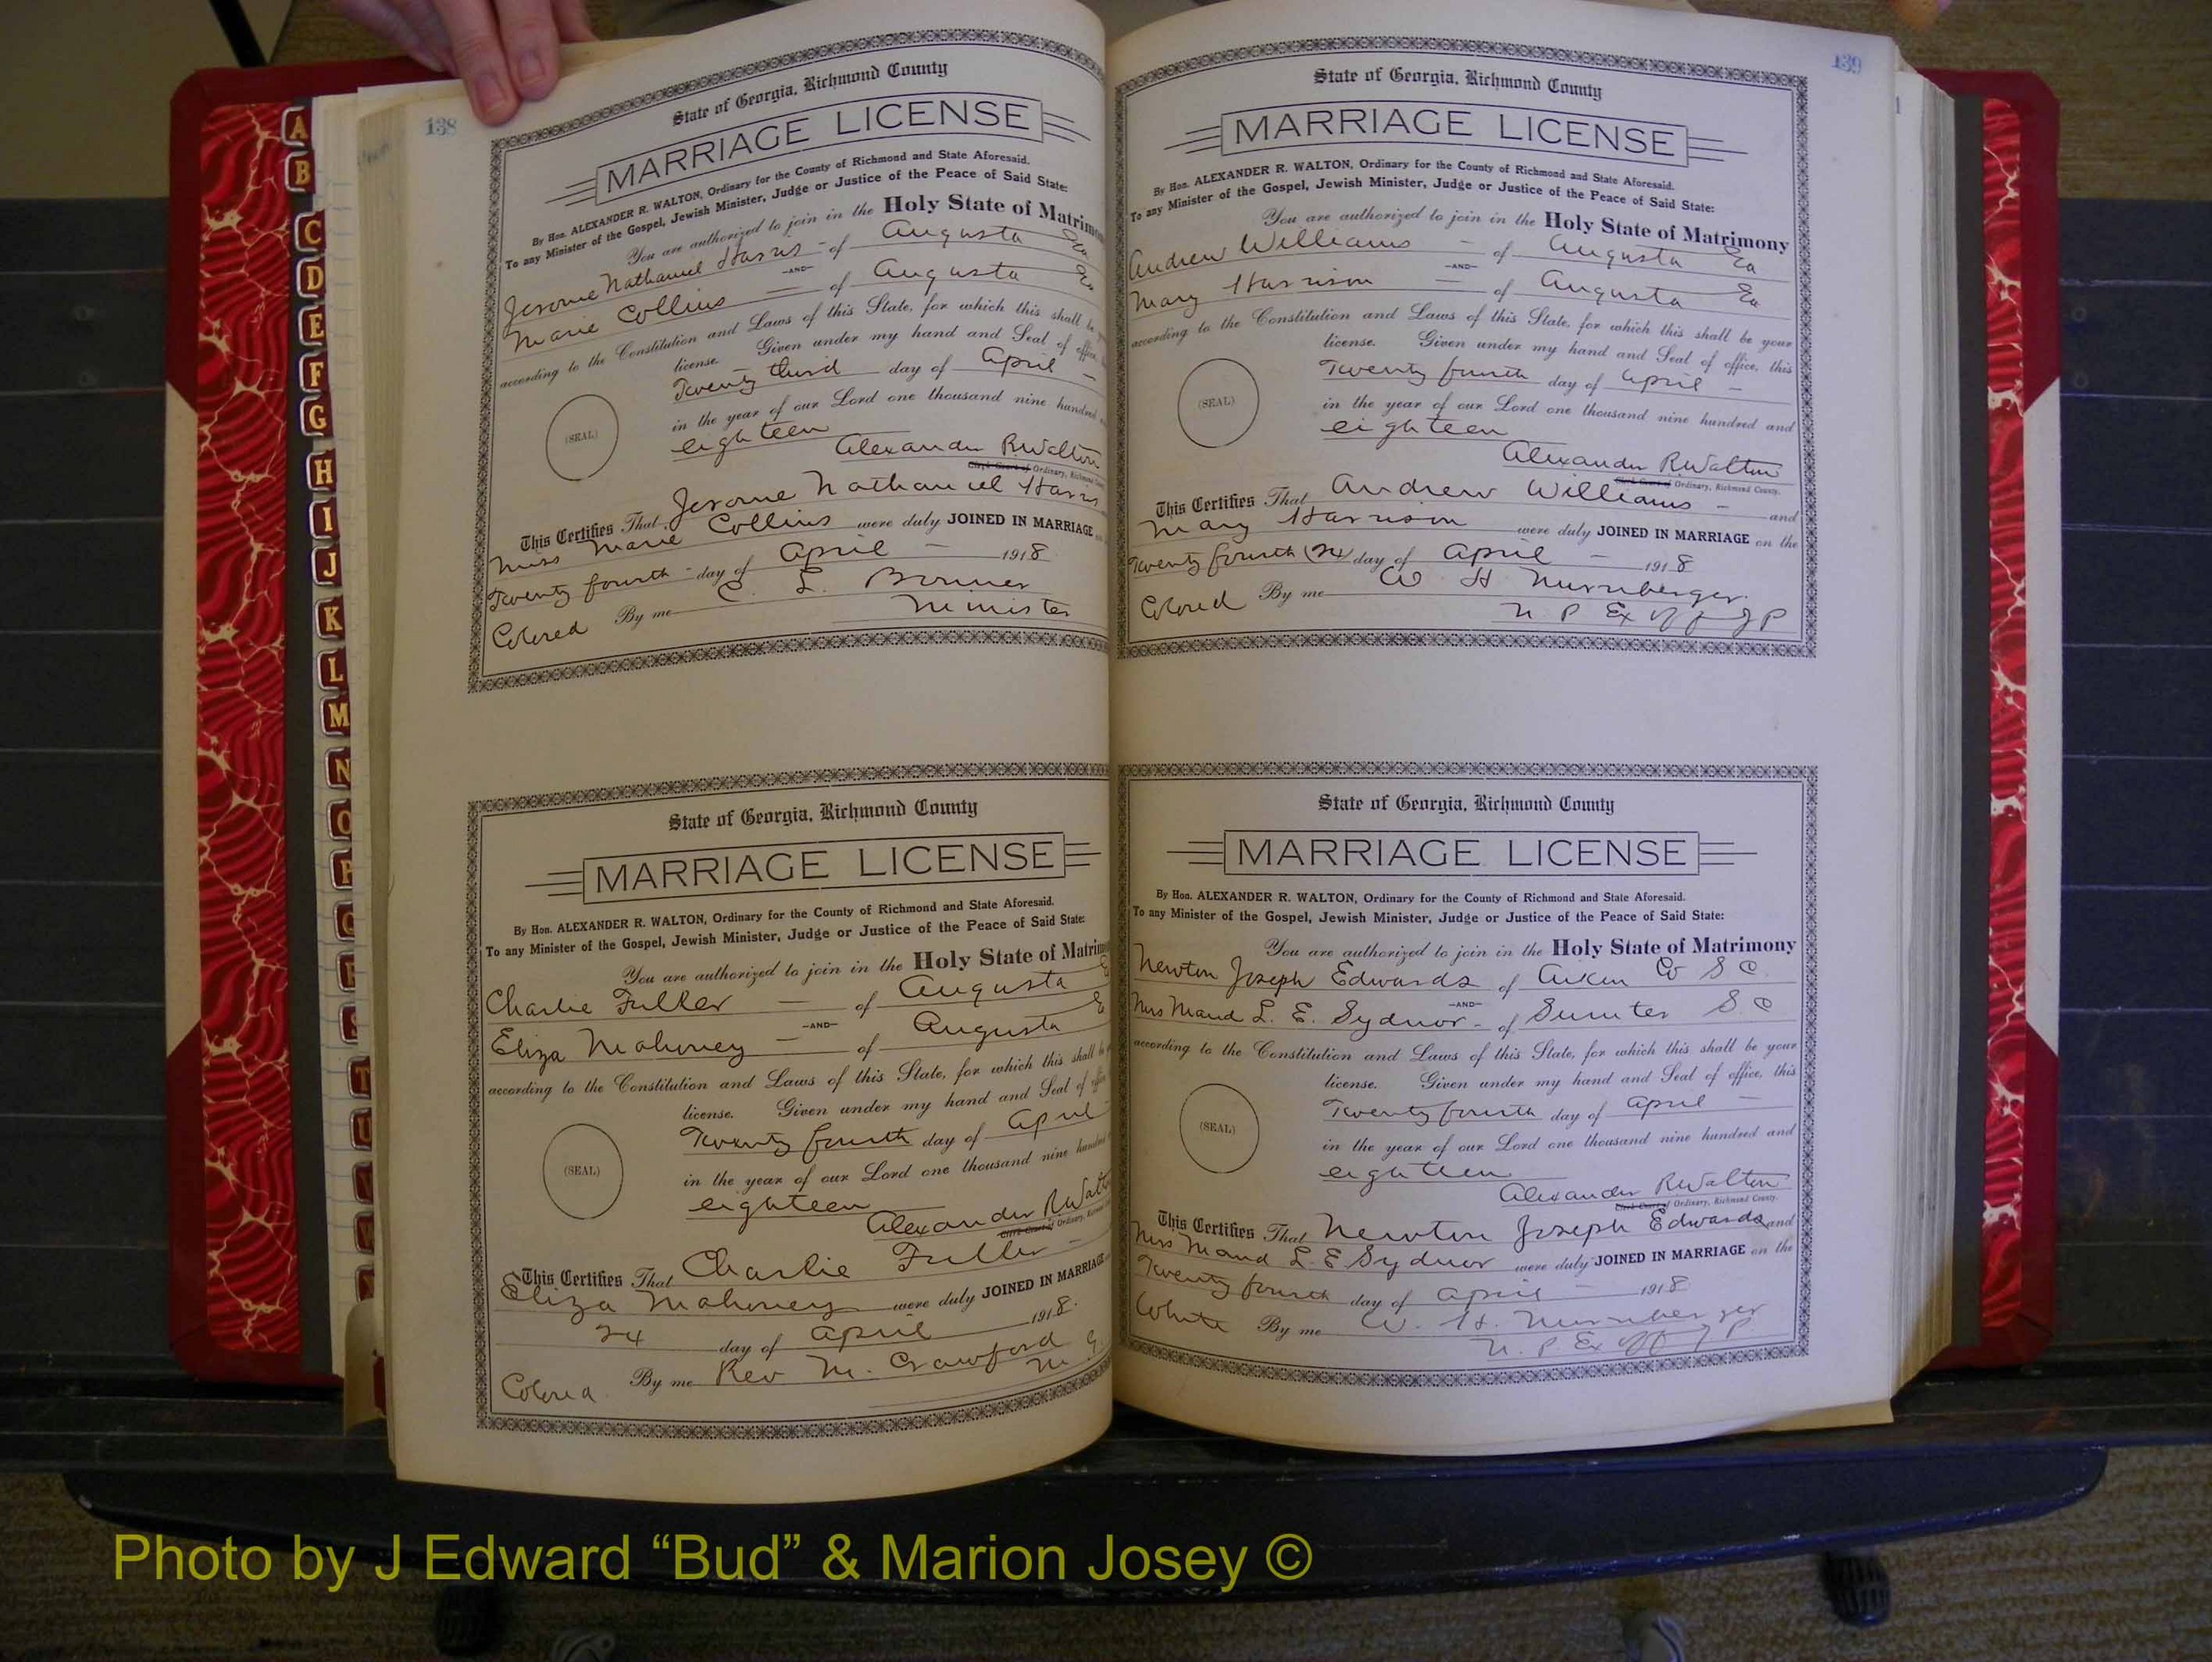 138
State of Georgia, Richmond County
MARRIAGE LICENSE
By Hon. ALEXANDER R. WALTON, Ordinary for the County of Richmond and State Aforesaid.
To any Minister of the Gospel, Jewish Minister, Judge or Justice of the Peace of Said State:
You are authorized to join in the Holy State of Matrimony
Jerome Nathaniel Harris - of Augusta Ga
-AND-
Marie Collins - of Augusta Ga
according to the Constitution and Laws of this State, for which this shall be
license. Given under my hand and Seal of office,
Twenty third day of April -
(SEAL)
in the year of our Lord one thousand nine hundred
eighteen
Alexander R Walton
Clerk Court of Ordinary, Richmond County
This Certifies That Jerome Nathaniel Harris
Miss Marie Collins were duly JOINED IN MARRIAGE
Twenty fourth - day of April - 1918
Colored By me C. L. Bonner
Minister
State of Georgia, Richmond County
MARRIAGE LICENSE
By Hon. ALEXANDER R. WALTON, Ordinary for the County of Richmond and State Aforesaid.
To any Minister of the Gospel, Jewish Minister, Judge or Justice of the Peace of Said State:
You are authorized to join in the Holy State of Matrim
Charlie Fuller - of Augusta
-AND-
Eliza Mahoney - of Augusta
according to the Constitution and Laws of this State, for which this shall be
license. Given under my hand and Seal of office
Twenty fourth day of April
(SEAL)
in the year of our Lord one thousand nine hundred
eighteen
Alexander R Walton
Clerk Court of Ordinary,
This Certifies That Charlie Fuller -
Eliza Mahoney were duly JOINED IN MARRIAGE
24 day of April 1918.
Colored By me Rev M. Crawford
M G.
139
State of Georgia, Richmond County
MARRIAGE LICENSE
By Hon. ALEXANDER R. WALTON, Ordinary for the County of Richmond and State Aforesaid.
To any Minister of the Gospel, Jewish Minister, Judge or Justice of the Peace of Said State:
You are authorized to join in the Holy State of Matrimony
Andrew Williams - of Augusta Ga
-AND-
Mary Harrison - of Augusta Ga
according to the Constitution and Laws of this State, for which this shall be your
license. Given under my hand and Seal of office, this
Twenty fourth day of April -
(SEAL)
in the year of our Lord one thousand nine hundred and
eighteen
Alexander R Walton
Clerk Court of Ordinary, Richmond County.
This Certifies That Andrew Williams - and
Mary Harrison were duly JOINED IN MARRIAGE on the
Twenty fourth (24) day of April - 1918
Colored By me W H Nurnberger.
N P Ex off J P
State of Georgia, Richmond County
MARRIAGE LICENSE
By Hon. ALEXANDER R. WALTON, Ordinary for the County of Richmond and State Aforesaid.
To any Minister of the Gospel, Jewish Minister, Judge or Justice of the Peace of Said State:
You are authorized to join in the Holy State of Matrimony
Newton Joseph Edwards of Aiken Co S C
-AND-
Mrs Maud L. E. Sydnor - of Sumter S C
according to the Constitution and Laws of this State, for which this shall be your
license. Given under my hand and Seal of office, this
Twenty fourth day of April -
(SEAL)
in the year of our Lord one thousand nine hundred and
eighteen
Alexander R Walton
Clerk Court of Ordinary, Richmond County.
This Certifies That Newton Joseph Edwards and
Mrs Maud L. E Sydnor were duly JOINED IN MARRIAGE on the
Twenty fourth day of April - 1918
White By me W. H. Nurnberger
N. P. Ex off J P.
A
B
C
D
E
F
G
H
I
J
K
L
M
N
O
P
Q
R
S
T
U
V
W
Photo by J Edward “Bud” & Marion Josey ©